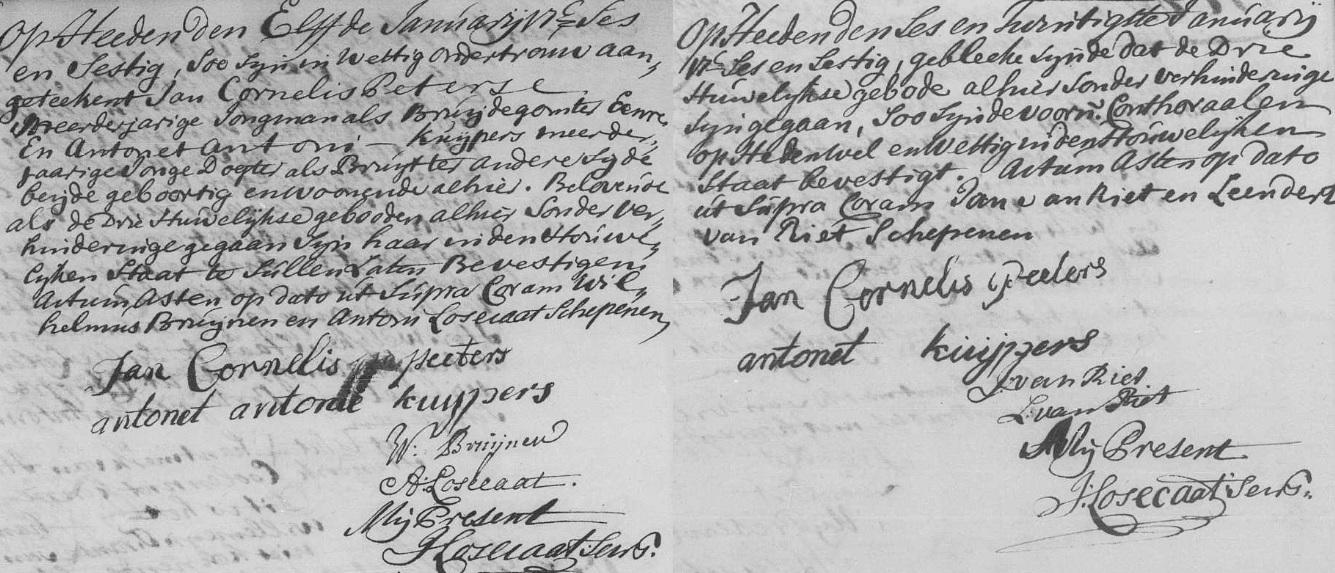 Op Heeden den Elfde Januarij 17C Ses
en Sestig, Soo Syn in Wettig ondertrouw aan,
geteekent Jan Cornelis Peterse
Meerderjarige Jongman als Bruijdegom ter Eenre
En Antonet antoni - Kuijpers meerder,
jaarige Jonge Dogter als Bruyt ter andere Syde
beijde geboortig en woonende alhier. Belovende
als de Drie Huwelijkse gebooden alhier Sonder ver,
hinderinge gegaan Syn haar in den Houwe,
lyken Staat te Sullen Laten Bevestigen,
Actum Asten op dato ut Supra Coram Wil,
helmus Bruijnen en Antoni Losecaat Schepenen,
Jan Cornelis peeters
antonet antonie kuypers
W. Bruijnen
A. Losecaat.
Mij Present
J Losecaat Secrs.
Op Heeden den Ses en Twintigste Januarij
17C Ses en Sestig, gebleeke Synde dat de Drie
Huwelijkse gebode alhier Sonder verhinderinge
Syn gegaan, Soo Synde voorn. Conthoraalen
op Heden Wel en Wettig in den Houwelijken
Staat bevestigt. Actum Asten op dato
ut Supra Coram Jan van Riet en Leendert
van Riet Schepenen
Jan Cornelis peeters
antonet kuijpers
J. van Riet
L. van Riet
Mij Present
J. Losecaat Secrs.